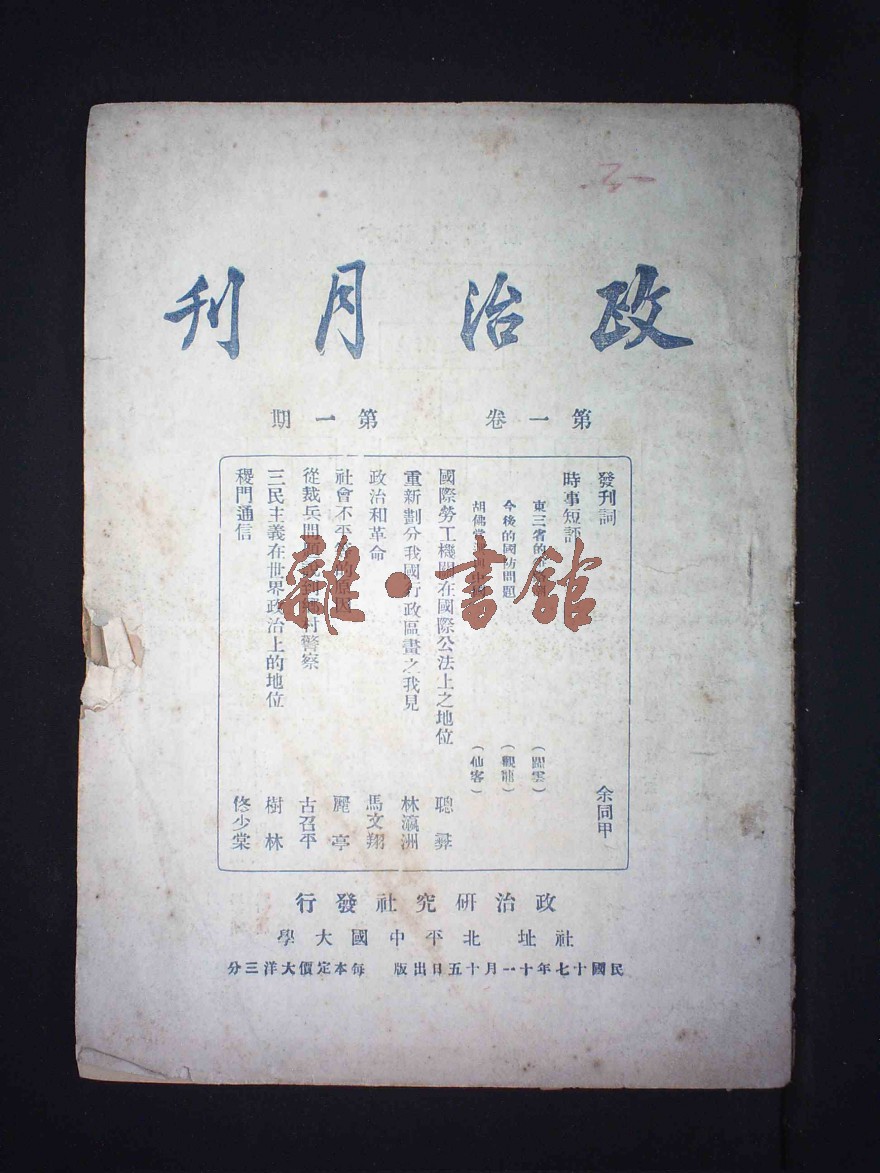 政治月刊
第一卷 第一期
發刊詞 余同甲
時事短評
東三省的 (閻雲)
今後的國防問題 (觀龍)
胡佛當 (仙客)
國際勞工機關在國際公法上之地位 聰彝
重新劃分我國行政區畫之我見 林瀛洲
政治和革命 馬文翔
社會不平等的原因 麗亭
從裁兵問題說到鄉村警察 古召平
三民主義在世界政治上的地位 樹林
稷門通信 佟少棠
政治研究社發行
社址 北平中國大學
民國十七年十一月十五日出版 每本定價大洋三分
雜·書館